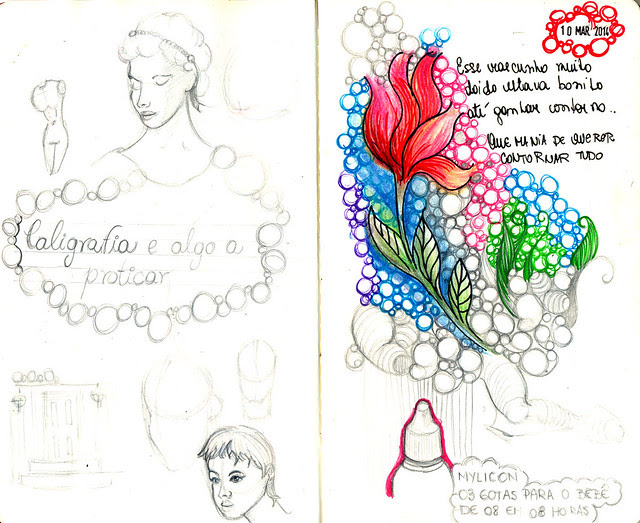 Caligrafia e algo a
praticar
10 MAR 2014
Esse rascunho muito
doido estava bonito
até ganhar contorno...
QUE MANIA DE QUERER
CONTORNAR TUDO
MYLICON
03 GOTAS PARA O BEBÊ
DE 08 EM 08 HORAS